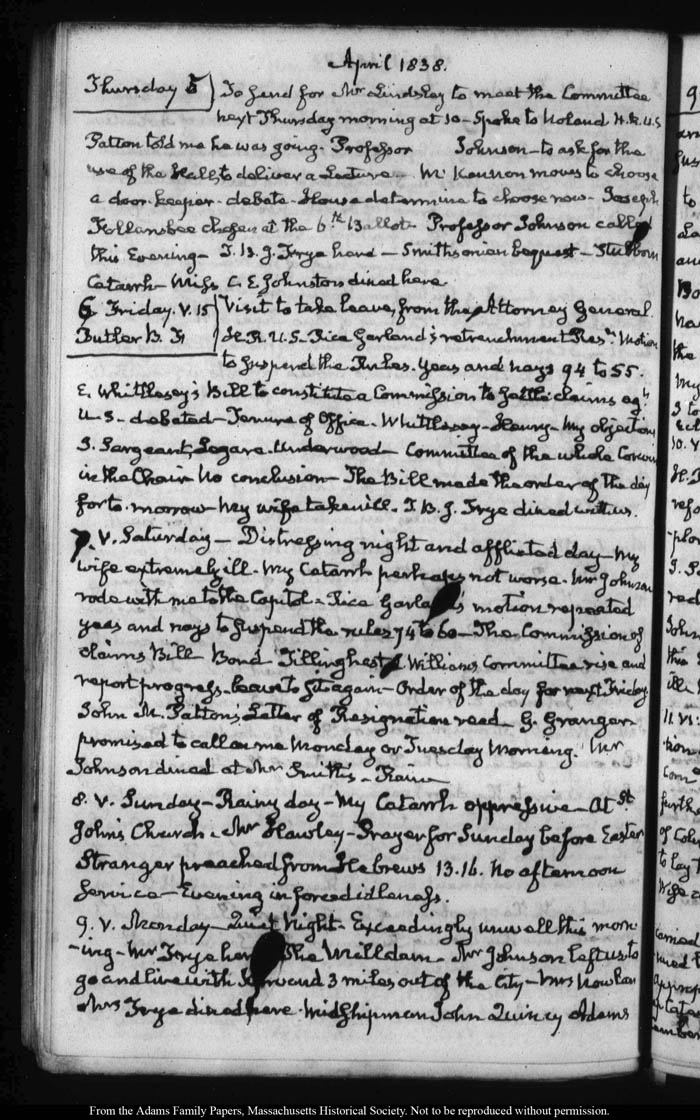 April 1838.
Thursday 5) To send for Mr Lindsley to meet the Committee
next Thursday morning at 10 - Spoke to Noland H.R.U.S
Patton told me he was going. Professor Johnson - to ask for the
use of the Hall, to deliver a Lecture - Mr moves to choose
a door-keeper - debate - House determine to choose now - Joseph
Follansbee chosen at the 6th Ballot. Professor Johnson called
this Evening - I. B. J. Frye here - Smithsonian bequest - Stubborn
Catarrh - Miss C. E. Johnston dined here
6. Friday. V. 15 Visit to take leave, from the Attorney General
Butler B. F. H.R.U.S. Rice Garland's retrenchment Resn. Motion
to suspend the Rules. Yeas and nays 94 to 55.
E. Whittlesey's Bill to constitute a Commission to settle claims agt
U.S. - debated - Tenure of Office - Whittlesey - Henry - My objections
S. Sergeant, Legare. Underwood - Committee of the whole Corwin
in the Chair No conclusion - The Bill made the order of the day
for to-morrow - My wife taken ill. I. B. J. Frye dined with us.
7. V. Saturday - Distressing night and afflicted day - My
wife extremely ill - My Catarrh perhaps not worse. Mr Johnson
rode with me to the Capitol - Rice Garland's motion repeated
yeas and nays to suspend the rules 74 to 60 - The Commission of
claims Bill - Bond Tillinghast Williams Committee rise and
report progress. leave to sit again - Order of the day for next Friday
John M. Patton's Letter of Resignation read - G. Granger
promised to call on me Monday or Tuesday Morning. Mr
Johnson dined at Mr Smith's - Rain
8. V. Sunday - Rainy day - My Catarrh oppressive - At St
John's Church - Mr Hawley - Prayer for Sunday before Easter
Stranger preached from Hebrews 13.16. No afternoon
service - Evening in forced idleness.
9. V. Monday - Quiet Night - Exceedingly unwell this morn
-ing - Mr Frye here The Milldam - Mr Johnson left us to
go and live with 3 miles out of the City - Mrs Nowlan
Mrs Frye dined here. Midshipman John Quincy Adams
From the Adams Family Papers, Massachusetts Historical Society. Not to be reproduced without permission.